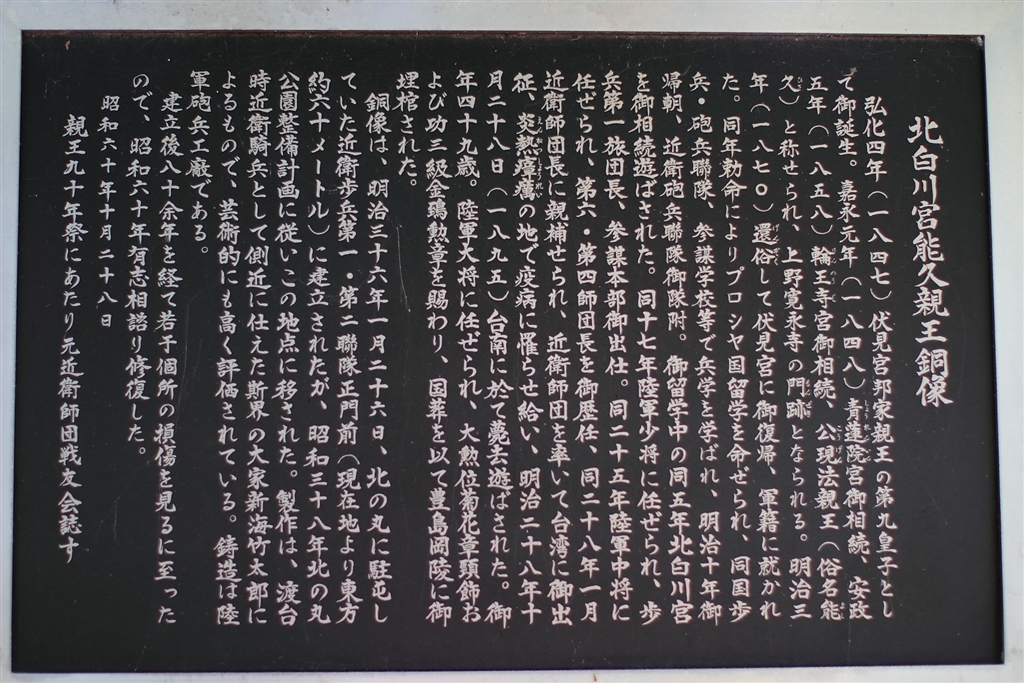 北白川宮能久親王銅像
弘化四年（一八四七）伏見宮邦家親王の第九皇子とし
て御誕生。嘉永元年（一八四八）青蓮院宮御相続、安政
五年（一八五八）輪王寺宮御相続、公現法親王（俗名能
久）と称せられ、上野寛永寺の門跡となられる。明治三
年（一八七〇）還俗して伏見宮に御復帰、軍籍に就かれ
た。同年勅命によりプロシヤ国留学を命ぜられ、同国歩
兵・砲兵聯隊、参謀学校等で兵学を学ばれ、明治十年御
帰朝、近衛砲兵聯隊御隊附。御留学中の同五年北白川宮
を御相続遊ばされた。同十七年陸軍少将に任ぜられ、歩
兵第一旅団長、参謀本部御出仕。同二十五年陸軍中将に
任ぜられ、第六・第四師団長を御歴任、同二十八年一月
近衛師団長に親補せられ、近衛師団を率いて台湾に御出
征、炎熱瘴癘の地で疫病に罹らせ給い、明治二十八年十
月二十八日（一八九五）台南に於て薨去遊ばされた。御
年四十九歳。陸軍大将に任ぜられ、大勲位菊花章頸飾お
よび功三級金鵄勲章を賜わり、国葬を以て豊島岡陵に御
埋棺された。
銅像は、明治三十六年一月二十六日、北の丸に駐屯し
ていた近衛歩兵第一・第二聯隊正門前（現在地より東方
約六十メートル）に建立されたが、昭和三十八年北の丸
公園整備計画に従いこの地点に移された。製作は、渡台
時近衛騎兵として側近に仕えた斯界の大家新海竹太郎に
よるもので、芸術的にも高く評価されている。鋳造は陸
軍砲兵工廠である。
建立後八十余年を経て若干個所の損傷を見るに至った
ので、昭和六十年有志相諮り修復した。
昭和六十年十月二十八日
親王九十年祭にあたり元近衛師団戦友会誌す